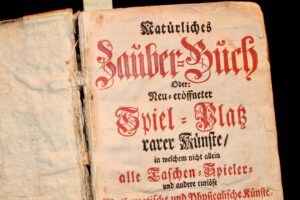 Natürliches
Zauber-Buch
Oder:
Neu-eröffneter
Spiel-Platz
rarer Künste/
in welchem nicht allein
alle Taschen-Spieler-
und andere curiöse
Mathematische und Physicalische Künste